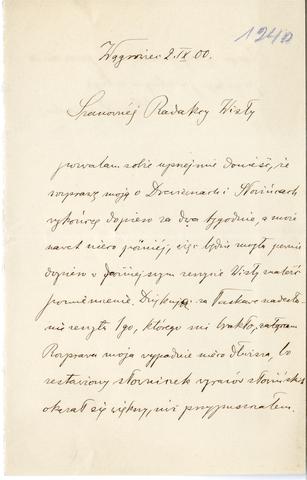 1240
Wągrowiec 2.IX.00.
Szanownej Redakcji Wisły
pozwalam sobie uprzejmie donieść, że
rozprawę moją o Drzeżnach i
wykończę dopiero za dwa tygodnie, a może
nawet nieco później, więc będzie mogła pewnie
dopiero w późniejszym zeszycie Wisły znaleść
pomieszczenie. Dziękuję za łaskawe nadesła-
nie zeszytu 1go, którego mi brakło, zarazem
Rozprawa moja wypadnie nieco dłuższa, bo
zestawiony słowniczek wyrazów
okazał się większy, niż przypuszczałem.